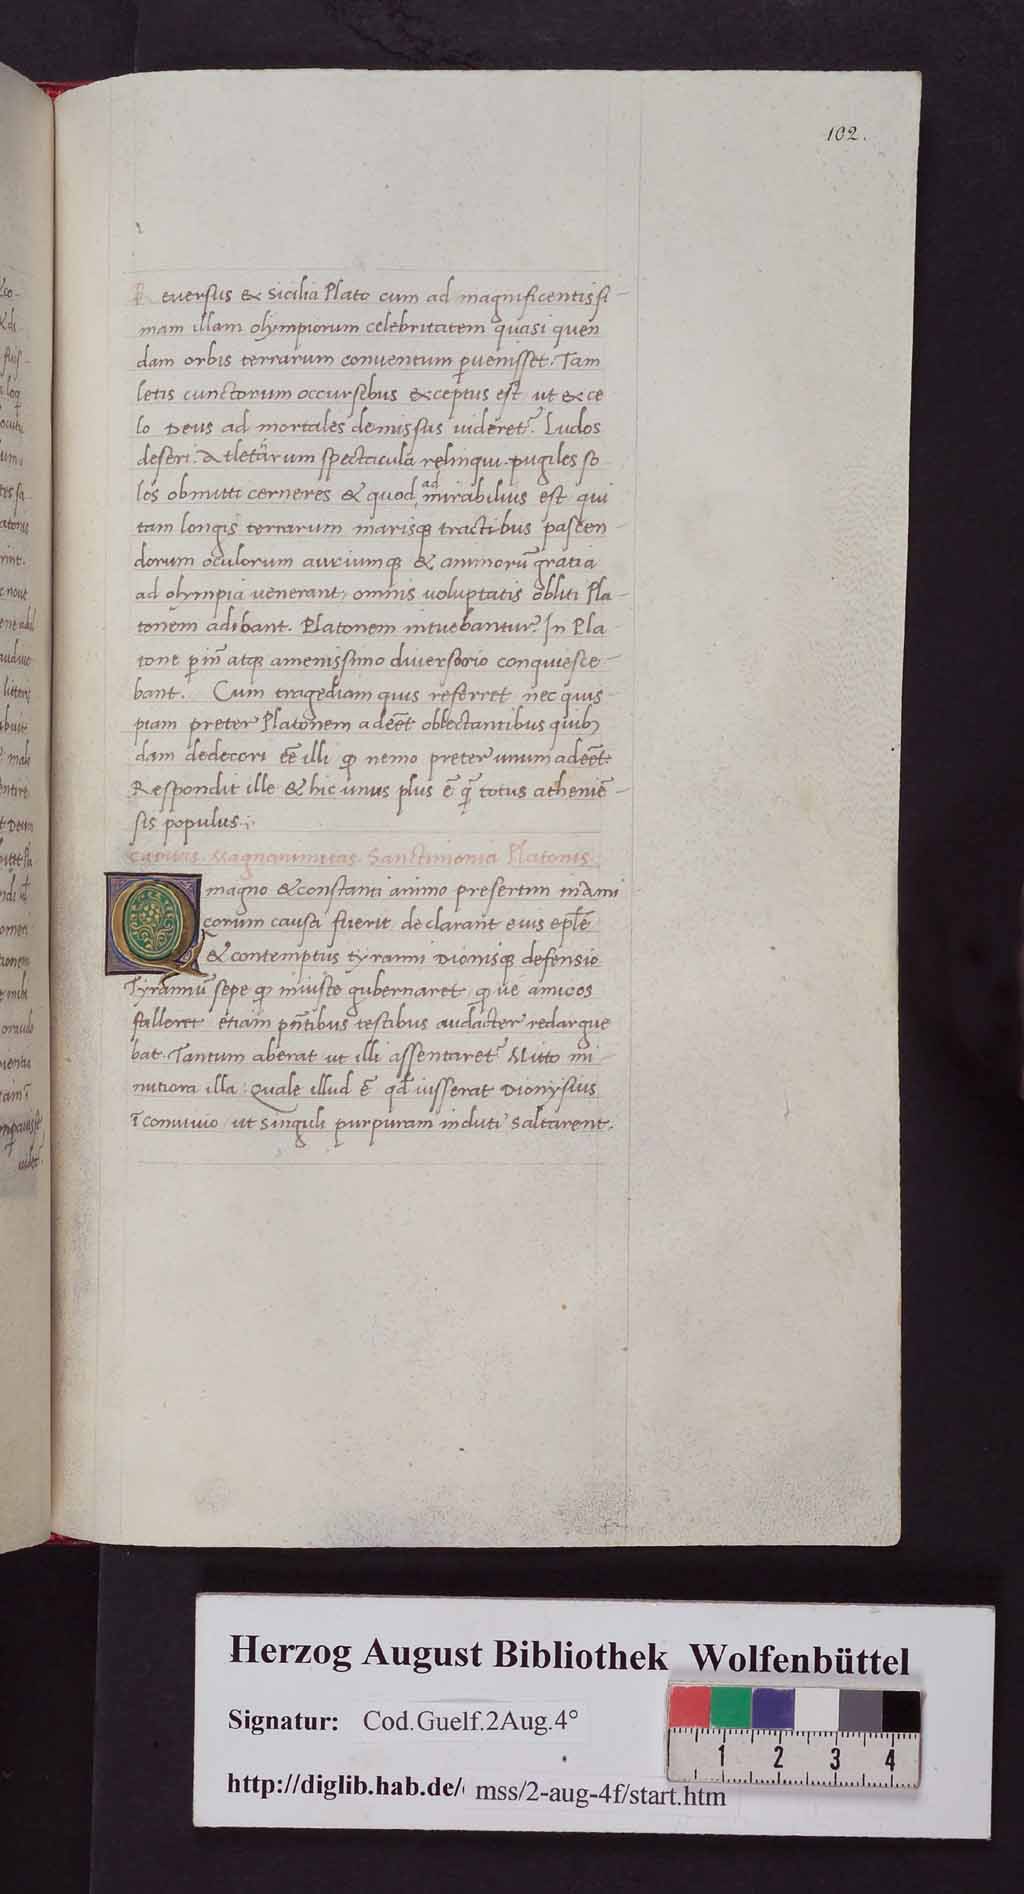 102.
Reuersus ex Sicilia Plato cum ad magnificentissi-
mam illam olympiorum celebritatem quasi quen
dam orbis terrarum conuentum ꝑuenisset. Tam
letis cunctorum occursibus exceptus est ut ex ce
lo Deus ad mortales demissus uideret᷑. Ludos
deseri. Atletarum spectacula relinqui. pugiles so
los obmitti cerneres & quod admirabilius est qui
tam longis terrarum marisq; tractibus pascen-
dorum oculorum auriumq; & animorū gratia
ad olympia uenerant, omnis uoluptatis obliti Pla-
tonem adibant. Platonem intuebantur. In Pla
tone ꝑin̄ atq; amenissimo diuersorio conquiesce-
bant. Cum tragediam quis referret nec quis
piam preter Platonem adeēt oblectantibus quib;
dam dedecori eē illi ꝙ nemo preter unum adeēt
Respondit ille & hic unus plus ē q̄ totus atheniē-
sis populus.
Magnanimitas Sanctimonia Platonis
Q magno & constanti animo presertim in Ami
corum causa fuerit declarant eius eplē
& contemptus tyranni Dionisiq; defensio
Tyrannū sepe ꝙ iniuste gubernaret ꝙ ue amicos
falleret etiam pn̄tibus testibus audacter redargue
bat. Tantum aberat ut illi assentaret᷑ Mitto mi-
nutiora illa: Quale illud ē qd̄ iusserat Dionysius
ī conuiuio ut singuli purpuram induti saltarent.
Herzog August Bibliothek Wolfenbüttel
Signatur: Cod.Guelf.2Aug.4°
1 2 3 4
http://diglib.hab.de/ mss/2-aug-4f/start.htm